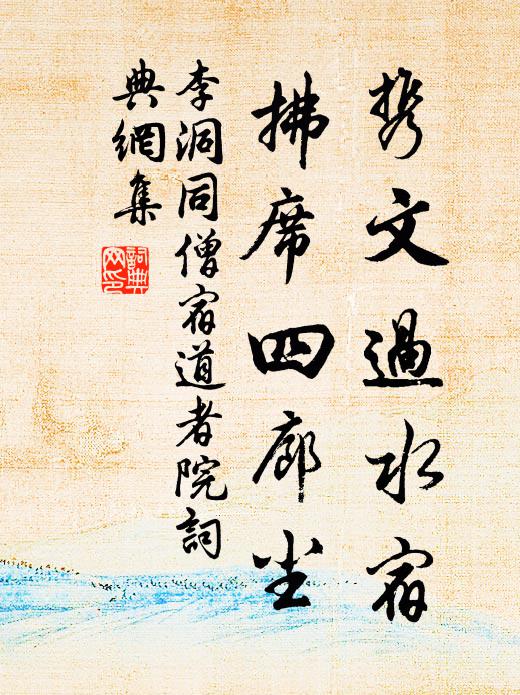 携文過水宿
拂席四廊尘
李洞同僧宿道者院詞
典網集
詞典
网印